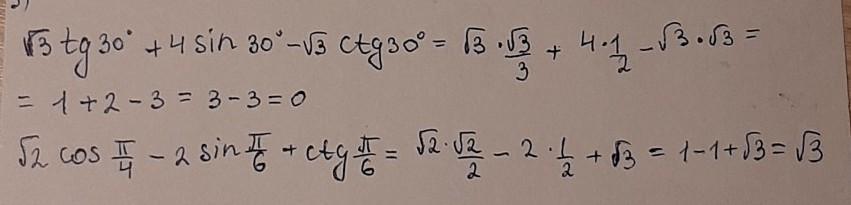 √3 tg 30° + 4 sin 30° - √3 ctg 30° = √3 · √3/3 + 4 · 1/2 - √3 · √3 =
= 1 + 2 - 3 = 3 - 3 = 0
√2 cos π/4 - 2 sin π/6 + ctg π/6 = √2 · √2/2 - 2 · 1/2 + √3 = 1 - 1 + √3 = √3